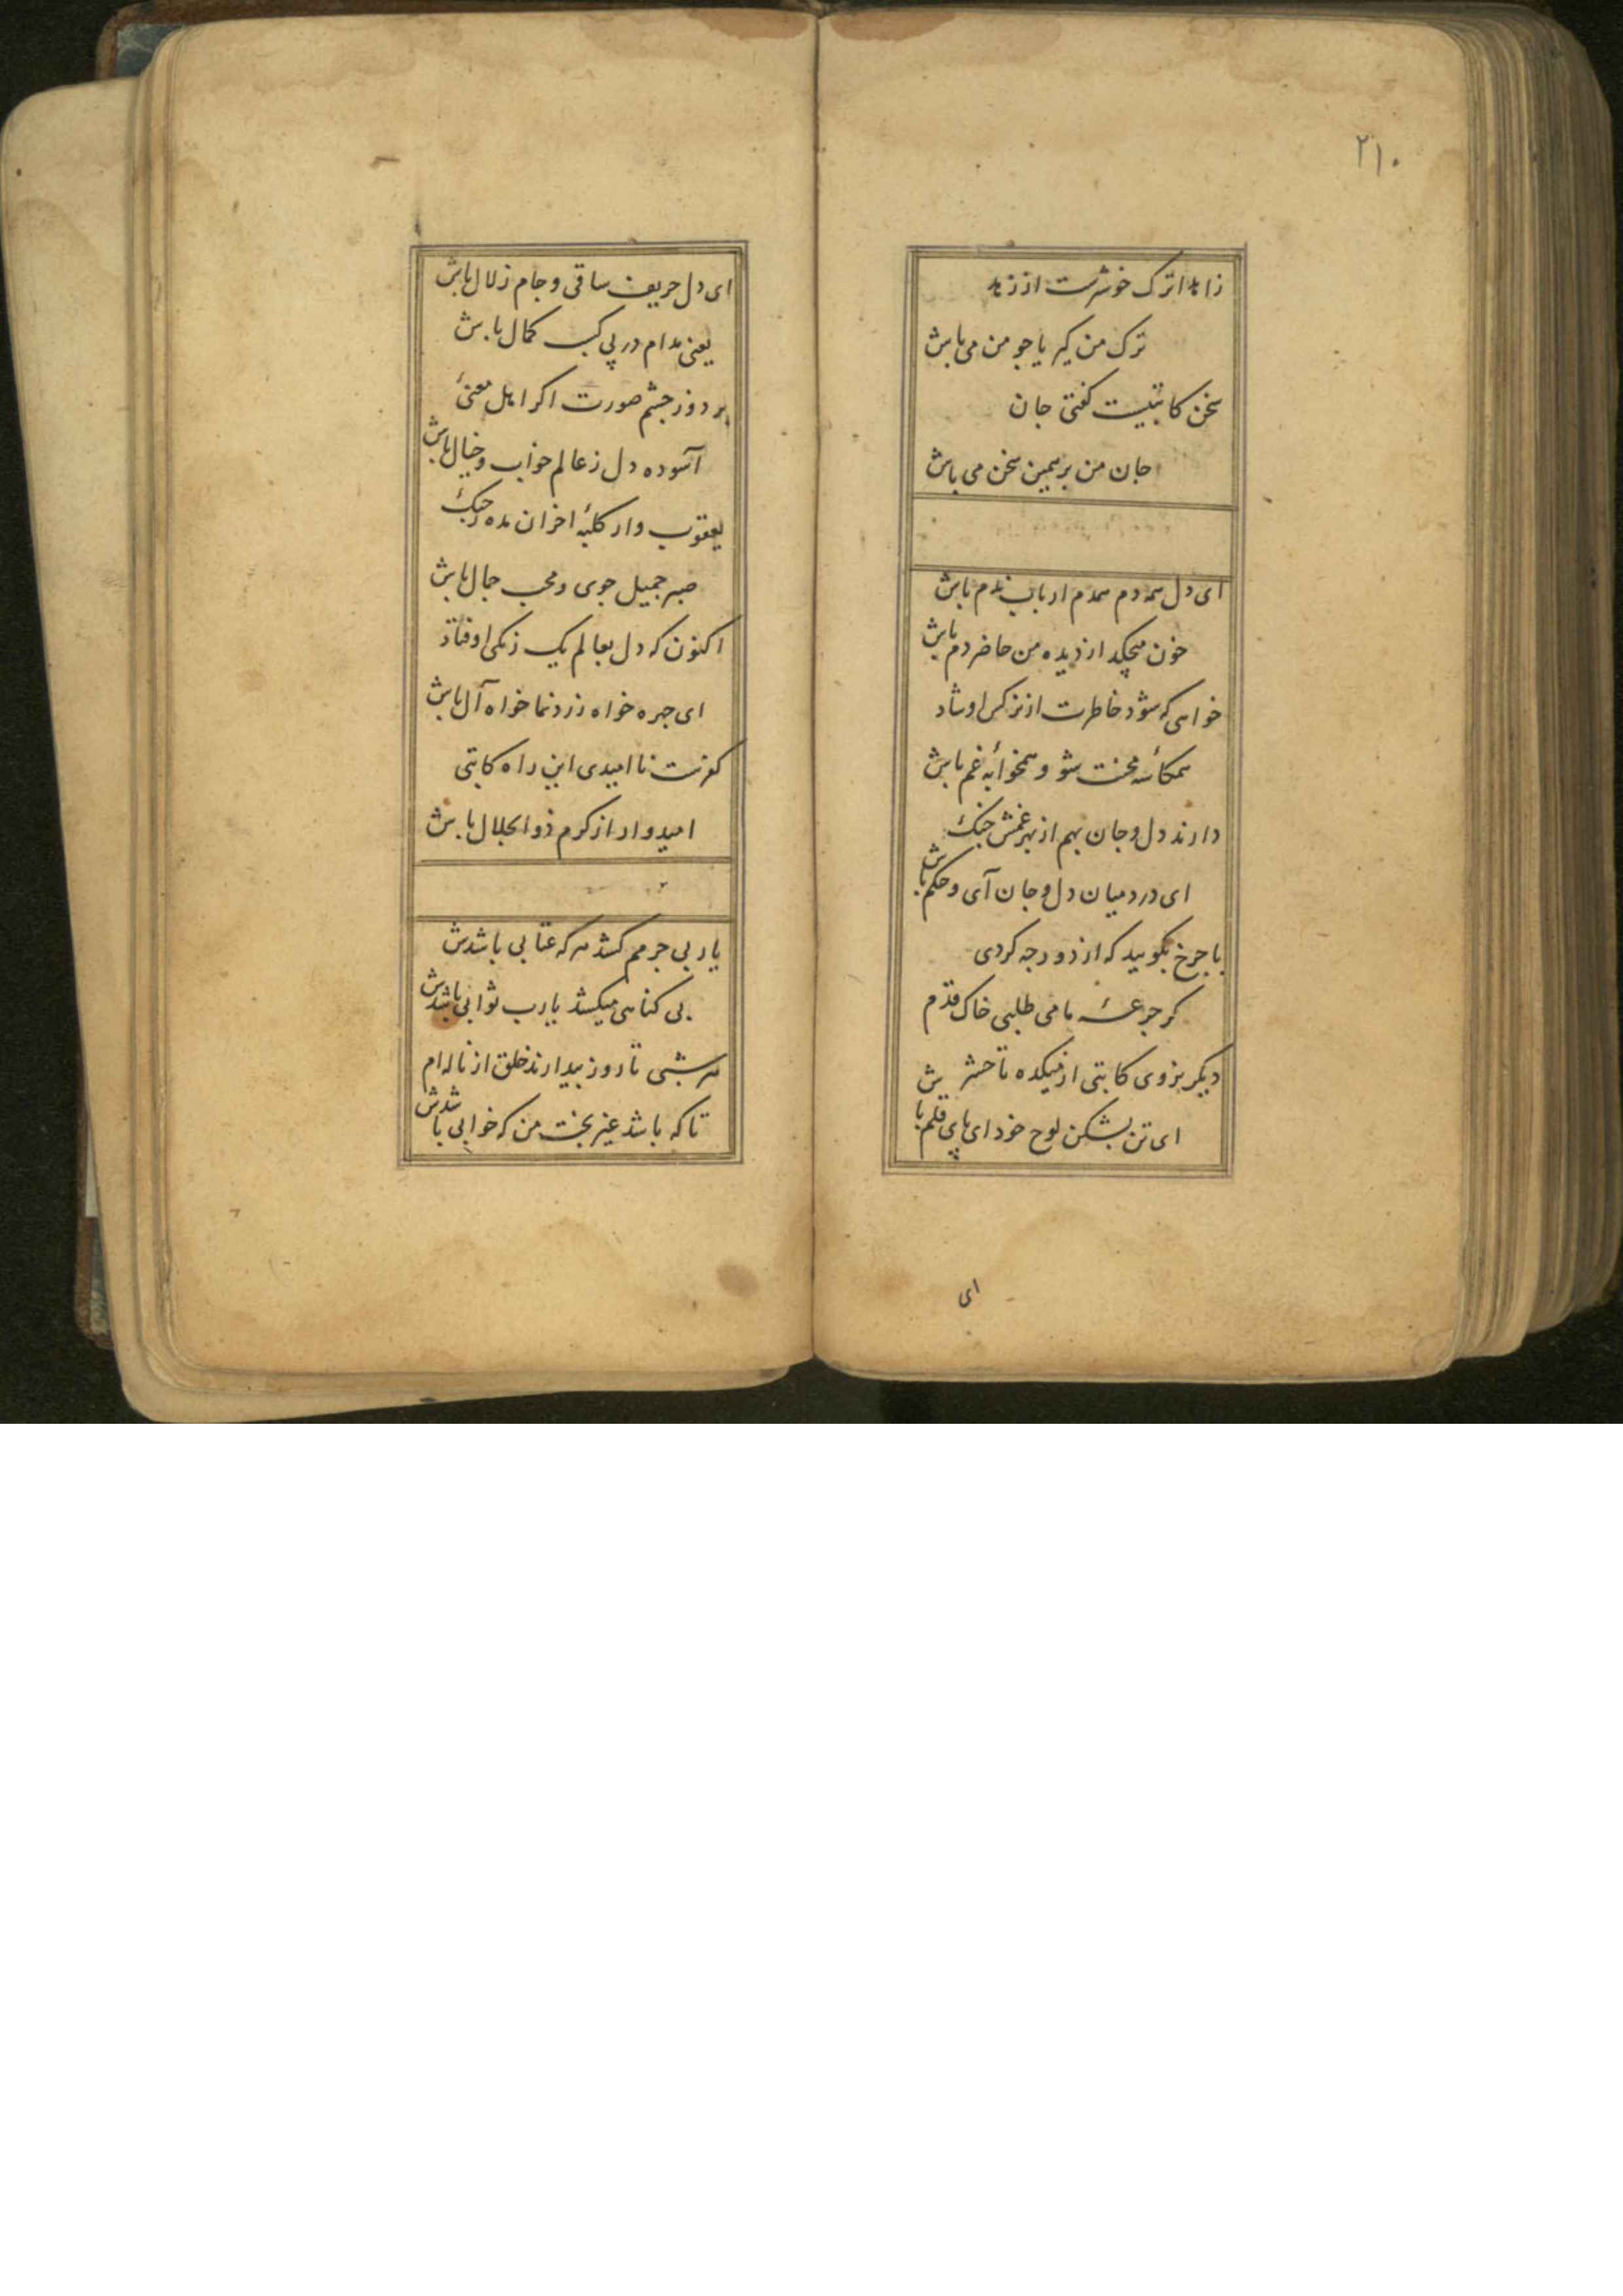 ۲۱۰
زاهدا ترک خوشترست از زهد
ترک من گیر یا چو من می باش
سخن کاتبیست گفتی جان
جان من بر همین سخن می باش
ای دل همه دم همدم ارباب ندم باش
خون میچکد از دیده من حاضر دم باش
خواهی که شود خاطرت از نرگس او شاد
همکاسهٔ محنت شو و همخوابهٔ غم باش
دارند دل و جان بهم از بهر غمش جنگ
ای درد میان دل و جان آی و حکم باش
با چرخ بگویید که از دور چه گردی
گر جرعهٔ ما می طلبی خاک قدم
دیگر نروی کاتبی از میکده تا حشر
ای تن بشکن لوح خود ای پای قلم باش
ای
ای دل حریف ساقی و جام زلال باش
یعنی مدام در پی کسب کمال باش
بر دوز چشم صورت اگر اهل معنیٔ
آسوده دل ز عالم خواب و خیال باش
یعقوب وار کلبهٔ احزان مده ز چنگ
صبر جمیل جوی و محب جمال باش
اکنون که دل بعالم یک رنگی اوفتاد
ای چهره خواه زرد نما خواه آل باش
کفرست ناامیدی این راه کاتبی
امیدوار از کرم ذوالجلال باش
یار بی جرمم کشد هر گه عتابی باشدش
بی گناهی میکشد یارب ثوابی باشدش
هر شبی تا روز بیدارند خلق از ناله ام
تا که باشد غیر بخت من که خوابی باشدش